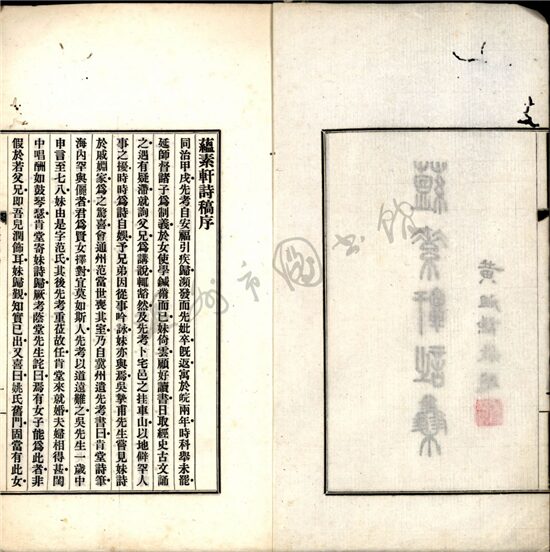 蘊素軒詩集
蘊素軒詩稿序
同治甲戌先考自安福引疾歸瀕發而先妣卒旣返寓於皖兩年時科舉未罷
延師督諸子爲制義於女使學鍼黹而已妹倚雲顧好讀書日取經史古文誦
之遇有疑滯就詢父兄爲講說輒豁然及先考卜宅邑之挂車山以地僻罕人
事之擾時時爲詩自娛予兄弟因從事吟詠妹亦與焉吳摯甫先生嘗見妹詩
於戚嫺家爲之驚喜會通州范當世喪其室乃自冀州遺先考書曰肯堂詩筆
海內罕與儷者君爲賢女擇對宜莫如斯人先考以道遠難之吳先生一歲中
申言至七八妹由是字范氏其後先考重蒞故任肯堂來就婚夫婦相得甚閨
中唱酬如鼓琴瑟肯堂寄妹詩歸厥考蔭堂先生詫曰焉有女子能爲此者非
假於若父兄卽吾兒潤飾耳妹歸覲知實已出又喜曰姚氏舊門固當有此女